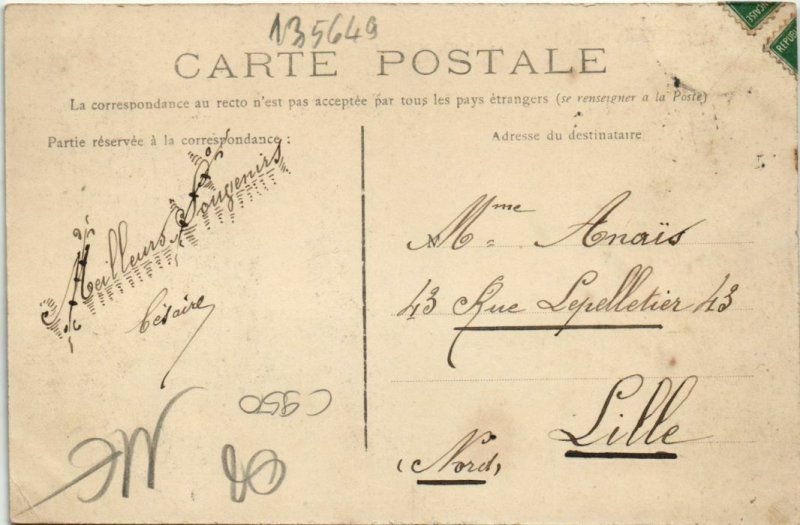 135649
CARTE POSTALE
La correspondance au recto n'est pas acceptée par tous les pays étrangers (se renseigner a la Poste)
Partie réservée à la correspondance :
Meilleurs Souvenirs
Césaire
Adresse du destinataire
Mme Anaïs
43 Rue Lepelletier 43
Lille
(Nord)
C950